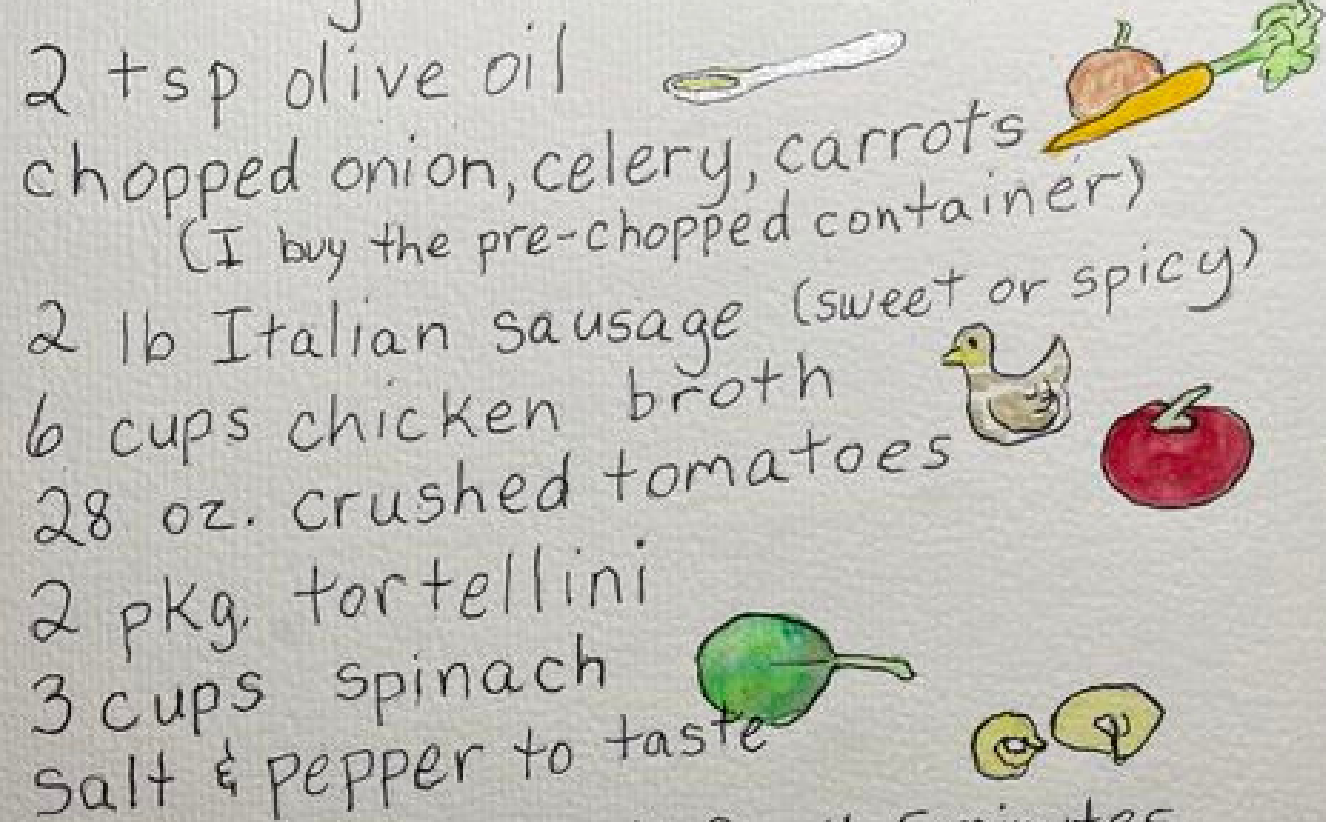 2 tsp olive oil
chopped onion, celery, carrots
(I buy the pre-chopped container)
2 lb Italian sausage (sweet or spicy)
6 cups chicken broth
28 oz. crushed tomatoes
2 pkg. tortellini
3 cups spinach
Salt & pepper to taste
5 minutes